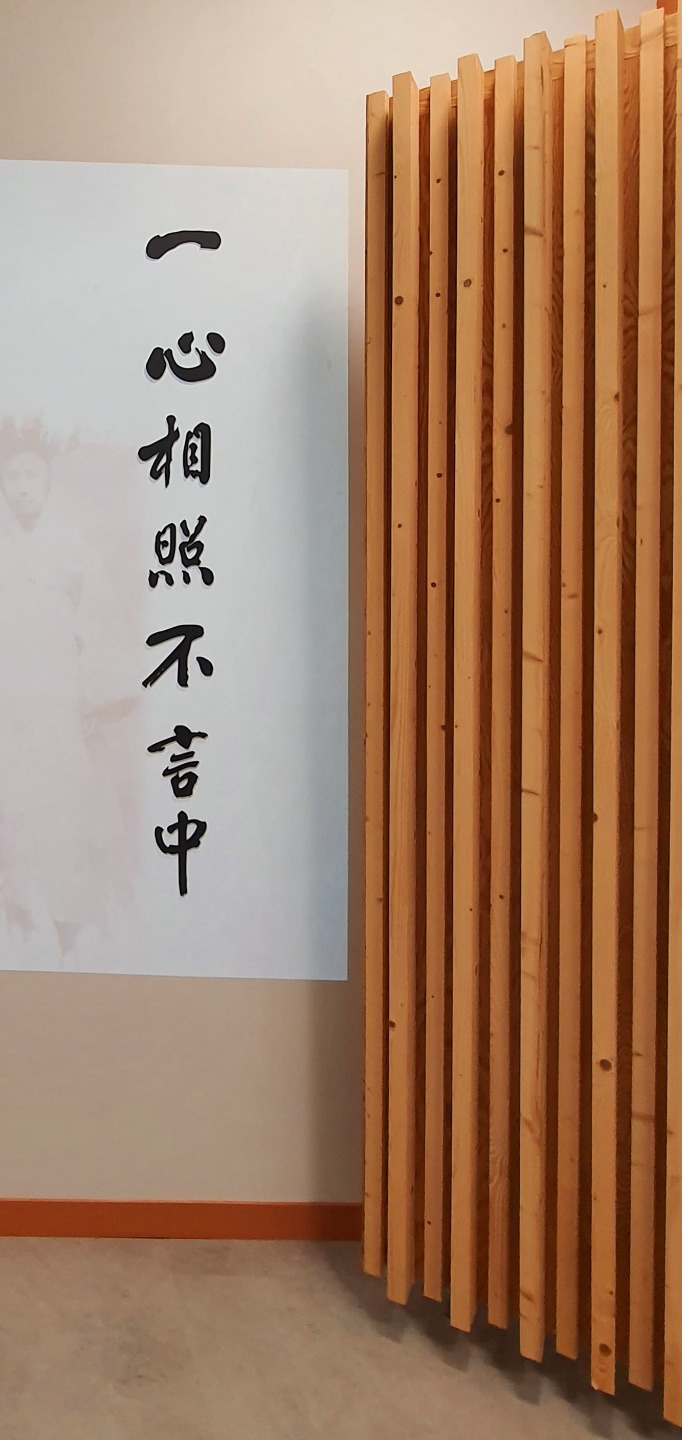 一心相照不言中